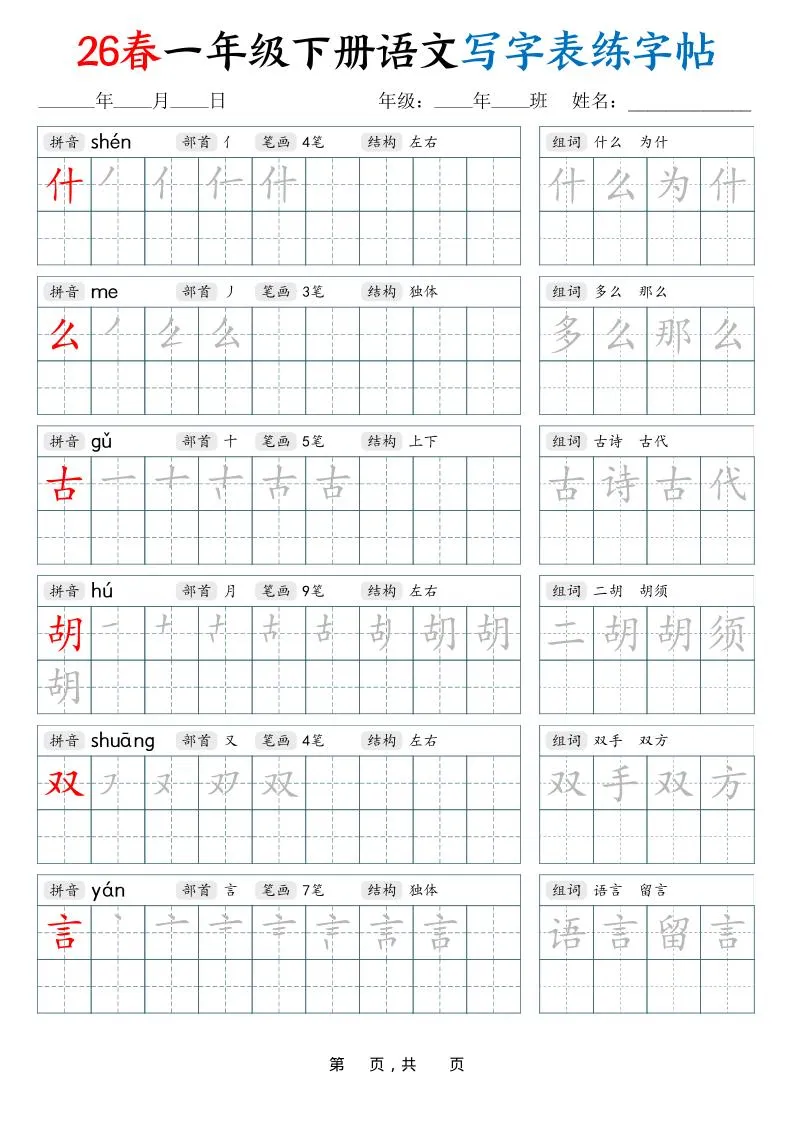 26春一年级下册语文写字表练字帖
______年____月____日 年级：____年____班 姓名：____________
拼音 shén 部首 亻 笔画 4笔 结构 左右 组词 什么 为什
什 丿 亻 什 什 什么为什
拼音 me 部首 丿 笔画 3笔 结构 独体 组词 多么 那么
么 丿 么 么 多么那么
拼音 gǔ 部首 十 笔画 5笔 结构 上下 组词 古诗 古代
古 一 十 古 古 古 古诗古代
拼音 hú 部首 月 笔画 9笔 结构 左右 组词 二胡 胡须
胡 一 十 古 古 古 胡 胡 胡 二胡胡须
胡
拼音 shuāng 部首 又 笔画 4笔 结构 左右 组词 双手 双方
双 フ 又 双 双 双手双方
拼音 yán 部首 言 笔画 7笔 结构 独体 组词 语言 留言
言 丶 亠 言 言 言 言 言 语言留言
第 页，共 页